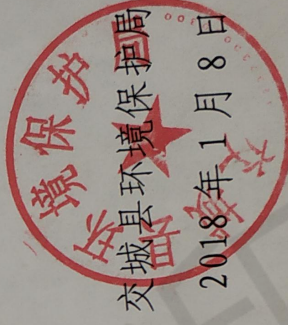 交城县环境保护局
2018年1月8日
交城县环境保护局